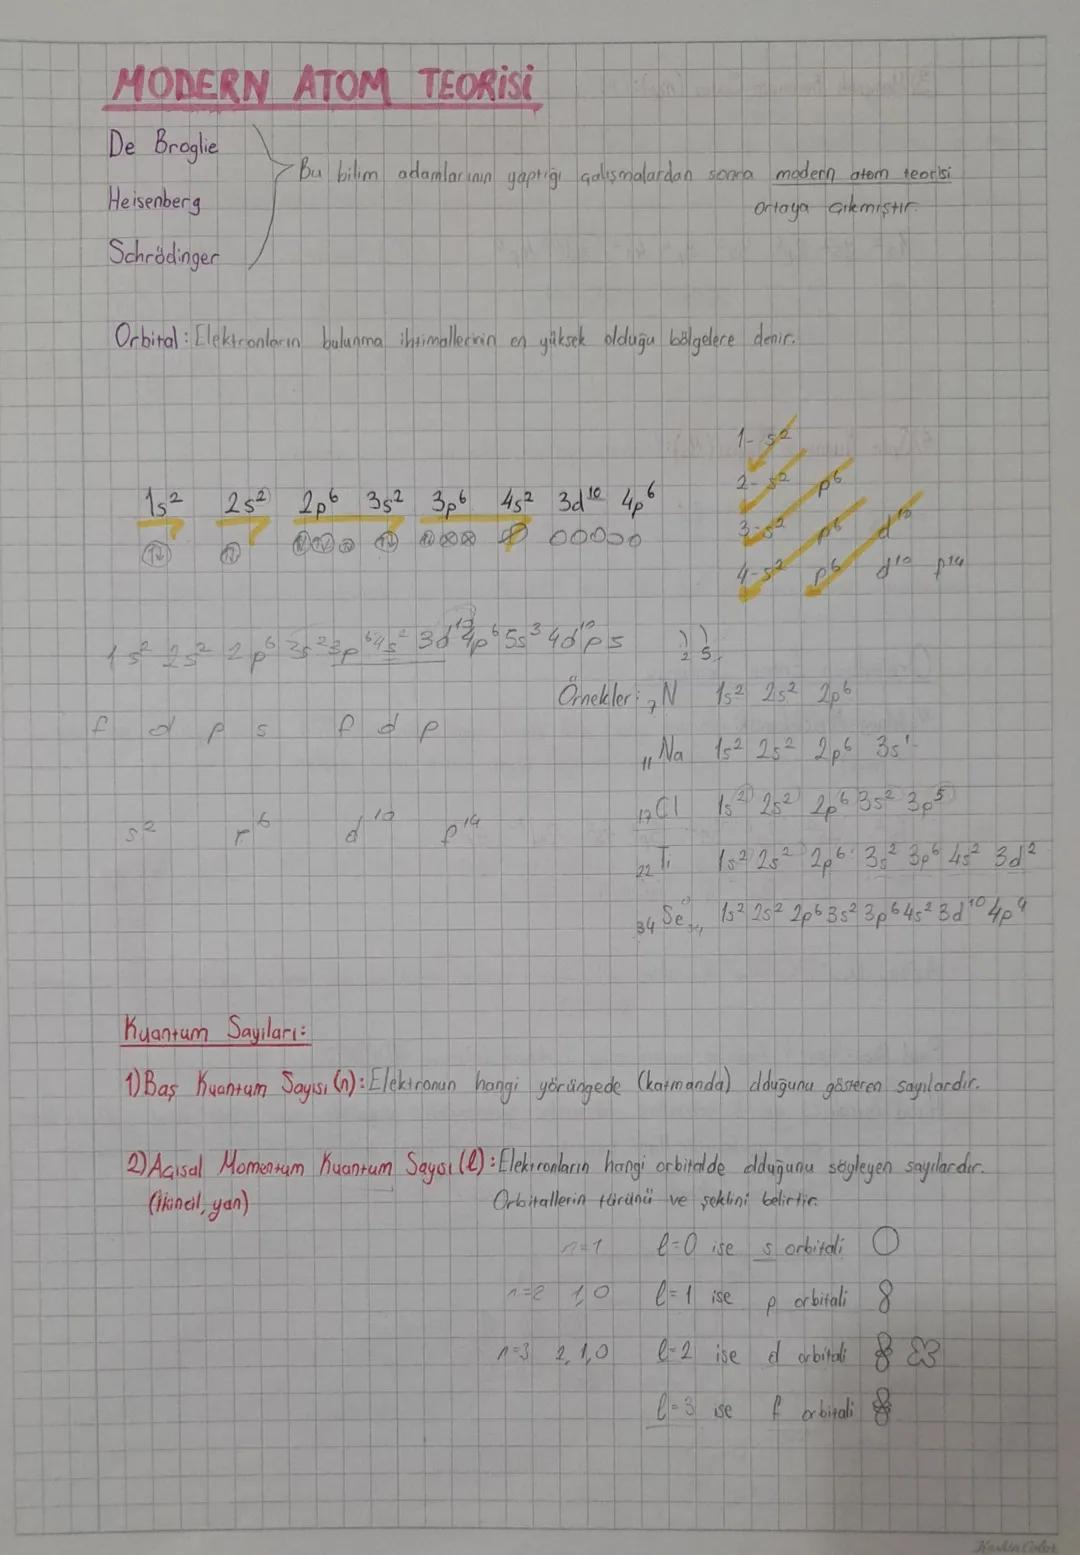 MODERN ATOM TEORİSİ
De Broglie
Heisenberg
Schrödinger
Bu bilim adamlarının yaptığı çalışmalardan sonra modern atom teorisi
ortaya çıkmıştır.
Orbital: Elektronların bulunma ihtimallerinin en yüksek olduğu bölgelere denir.
1- s²
2- s² p⁶
3- s² p⁶ d¹⁰
4- s² p⁶ d¹⁰ f¹⁴
1s² 2s² 2p⁶ 3s² 3p⁶ 4s² 3d¹⁰ 4p⁶
1s² 2s² 2p⁶ 3s² 3p⁶ 4s² 3d¹⁰ 4p⁶ 5s³ 4d¹⁰ p s
) )
2 5
f d p s f d p
s² 6 d¹⁰ f¹⁴
Örnekler: ₇N 1s² 2s² 2p⁶
₁₁Na 1s² 2s² 2p⁶ 3s¹
₁₇Cl 1s² 2s² 2p⁶ 3s² 3p⁵
₂₂Ti 1s² 2s² 2p⁶ 3s² 3p⁶ 4s² 3d²
₃₄Se 1s² 2s² 2p⁶ 3s² 3p⁶ 4s² 3d¹⁰ 4p⁴
Kuantum Sayıları:
1) Baş Kuantum Sayısı (n): Elektronun hangi yörüngede (katmanda) olduğunu gösteren sayılardır.
2) Açısal Momentum Kuantum Sayısı (ℓ): Elektronların hangi orbitalde olduğunu söyleyen sayılardır.
(ikincil, yan) Orbitallerin türünü ve şeklini belirtir.
n=1 ℓ=0 ise s orbitali
n=2 1,0 ℓ=1 ise p orbitali
n=3 2,1,0 ℓ=2 ise d orbitali
ℓ=3 ise f orbitali